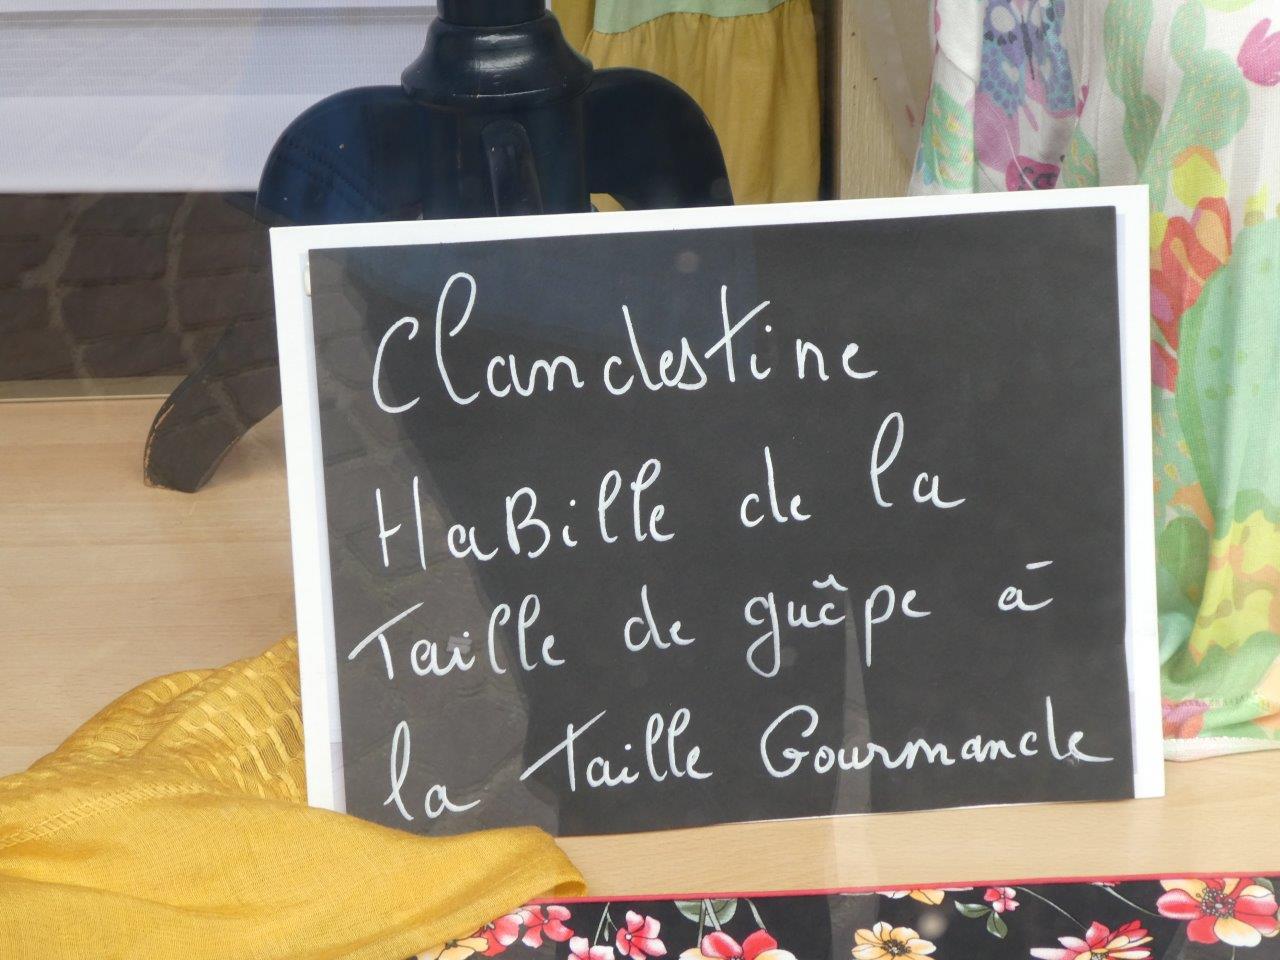 Clandestine
HaBille de la
Taille de guêpe à
la Taille Gourmande